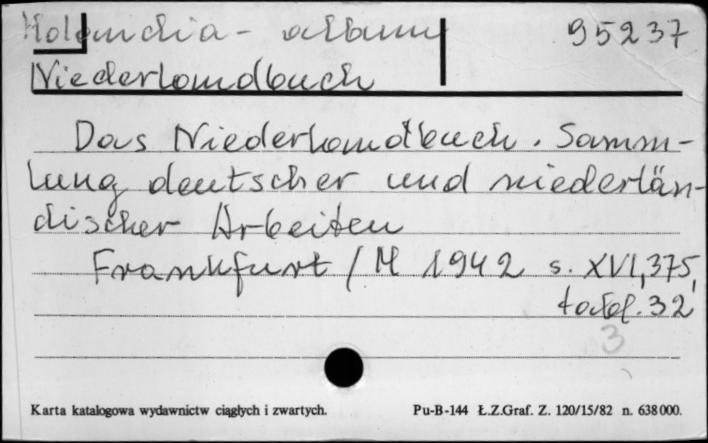 Holandia - album 95237
Niederlandbuch
Das Niederlandbuch. Samm-
lung deutscher und niederlän-
discher Arbeiten
Frankfurt / M 1942 s. XVI, 375,
tabl. 32
3
Karta katalogowa wydawnictw ciągłych i zwartych. Pu-B-144 Ł.Z.Graf. Z. 120/15/82 n. 638000.